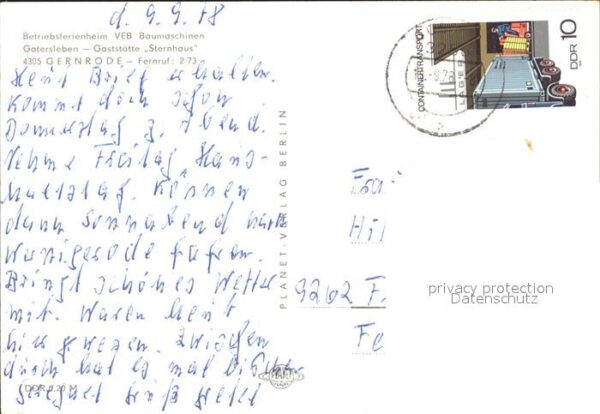 d. 9.9.78
Betriebsferienheim VEB Baumaschinen
Gatersleben – Gaststätte „Sternhaus"
4305 GERNRODE – Fernruf: 2 73
Heut Brief erhalten.
Kommt doch schon
Donnerstag z. Abend.
Nehme Freitag Haus-
haltstag. Können
dann Sonnabend nach
Wernigerode fahren.
Bringt schönes Wetter
mit. Waren heut
hier gewesen. Zwischen
durch hat es mal bißchen
geregnet Grüß
DDR 0,20 M
PLANET-VERLAG BERLIN
CONTAINERTRANSPORT
DDR 10
Frau
Hil
9262 F.
Fe
privacy protection
Datenschutz